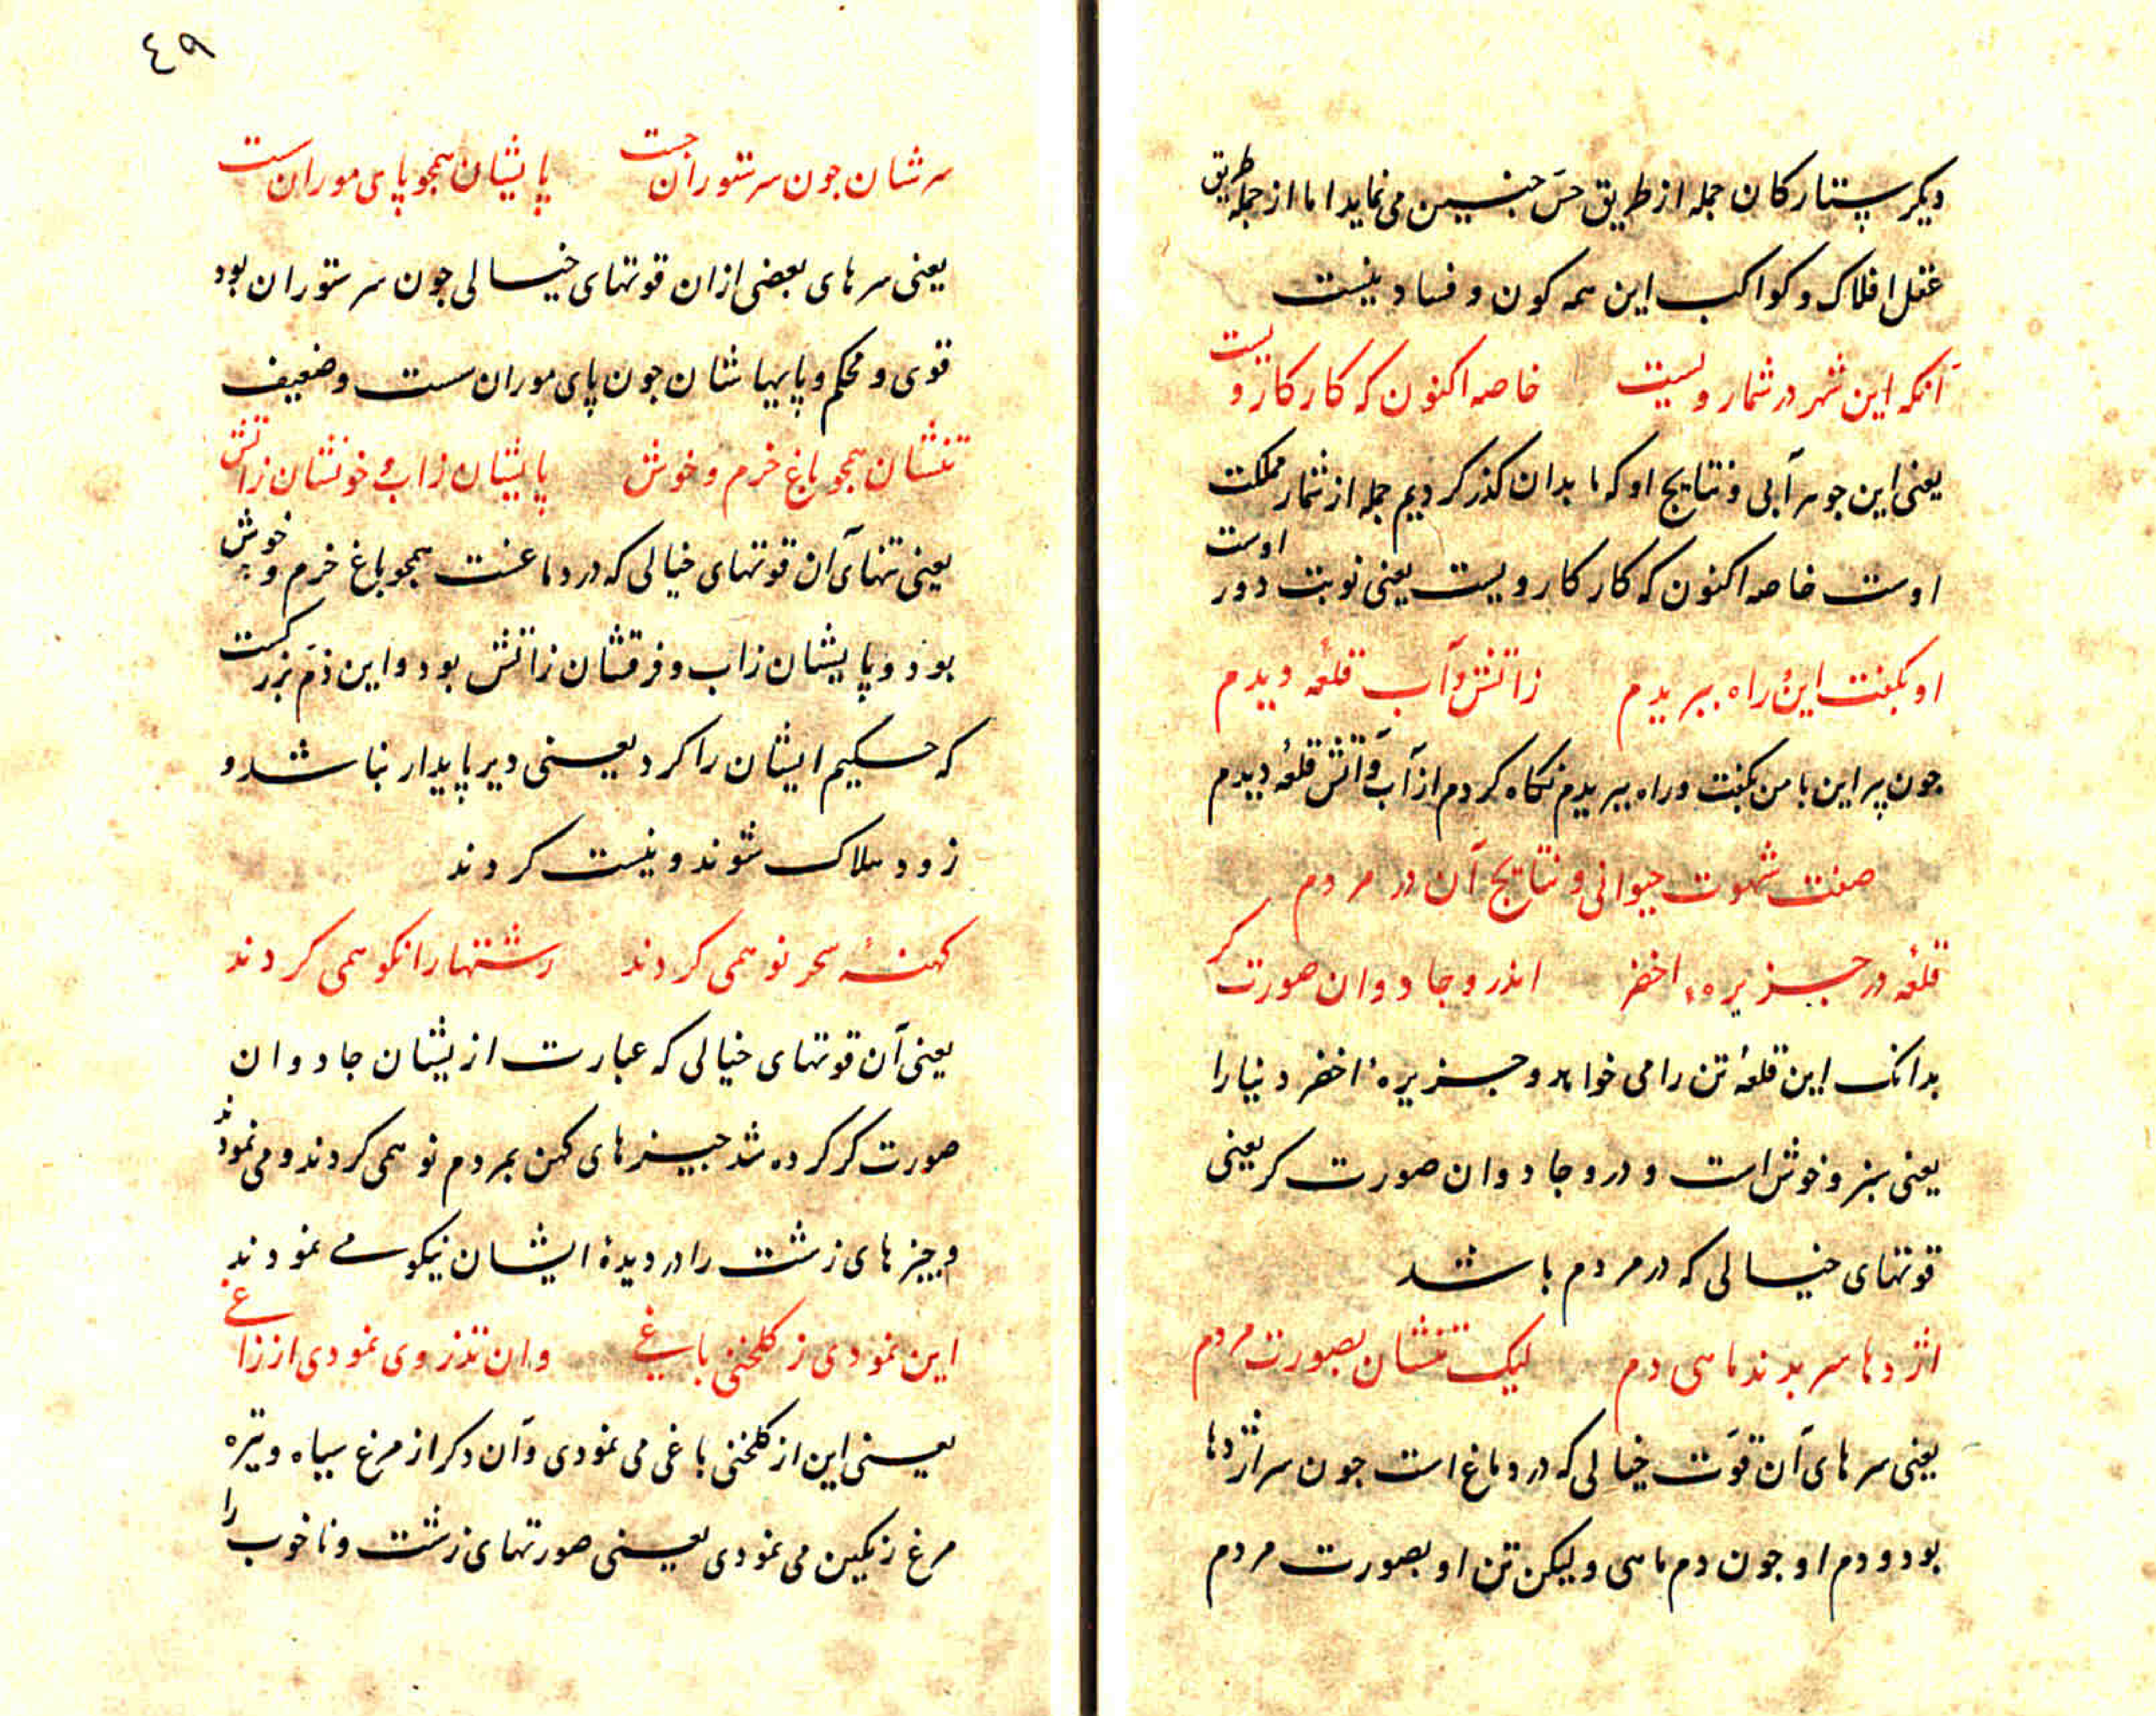 دیکر ستارکان جمله از طریق حسّ چنین می نماید اما از جمله طریق
عقل افلاک و کواکب این همه کون و فساد نیست
آنکه این شهر در شمار ویست خاصه اکنون که کار کار ویست
یعنی این جوهر آبی و نتایج او که ما بدان کذر کردیم جمله از شمار مملکت
اوست خاصه اکنون که کار کار ویست یعنی نوبت دور اوست
او بکفت این و راه ببریدم زاتش و آب قلعهٔ دیدم
جون پیر این با من بکفت و راه ببریدم نکاه کردم از آب و آتش قلعهٔ دیدم
صفت شهوت حیوانی و نتایج آن در مردم
قلعهٔ در جزیرهٔ اخضر اندرو جادوان صورت کر
بدانک این قلعهٔ تن را می خواهد و جزیرهٔ اخضر دنیا را
یعنی سبز و خوش است و درو جادوان صورت کر یعنی
قوتهای خیالی که در مردم باشد
اژدها سر بدند ماهی دم لیک تنشان بصورت مردم
یعنی سرهای آن قوّت خیالی که در دماغ است جون سر اژدها
بود و دم او جون دم ماهی ولیکن تن او بصورت مردم
٤٩
سرشان جون سر ستورانست پایشان همجو پای مورانست
یعنی سرهای بعضی ازان قوتهای خیالی جون سر ستوران بود
قوی و محکم و پایهاشان جون پای موران سست و ضعیف
تنشان همجو باغ خرم و خوش پایشان زاب و خونشان زاتش
یعنی تنهای آن قوتهای خیالی که در دماغست همجو باغ خرم و خوش
بود و پایشان زاب و فرقشان زاتش بود و این ذمّ بزرکست
که حکیم ایشان را کرد یعنی دیر پایدار نباشد و
زود هلاک شوند و نیست کردند
کهنهٔ سحر نو همی کردند زشتها را نکو همی کردند
یعنی آن قوتهای خیالی که عبارت ازیشان جادوان
صورت کر کرده شد جیزهای کهن بمردم نو همی کردند و می نمودند
و چیزهای زشت را در دیدهٔ ایشان نیکو می نمودند
این نمودی ز کلخنی باغی وان تذروی نمودی از زاغی
یعنی این از کلخنی باغی می نمودی و آن دکر از مرغ سیاه و تیره
مرغ رنکین می نمودی یعنی صورتهای زشت و ناخوب را